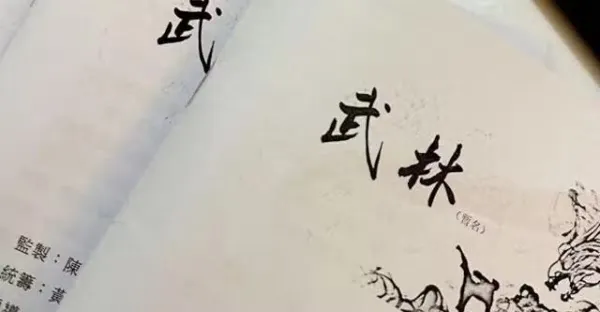 武
監製：陳
統籌：黃
武林
（暫名）